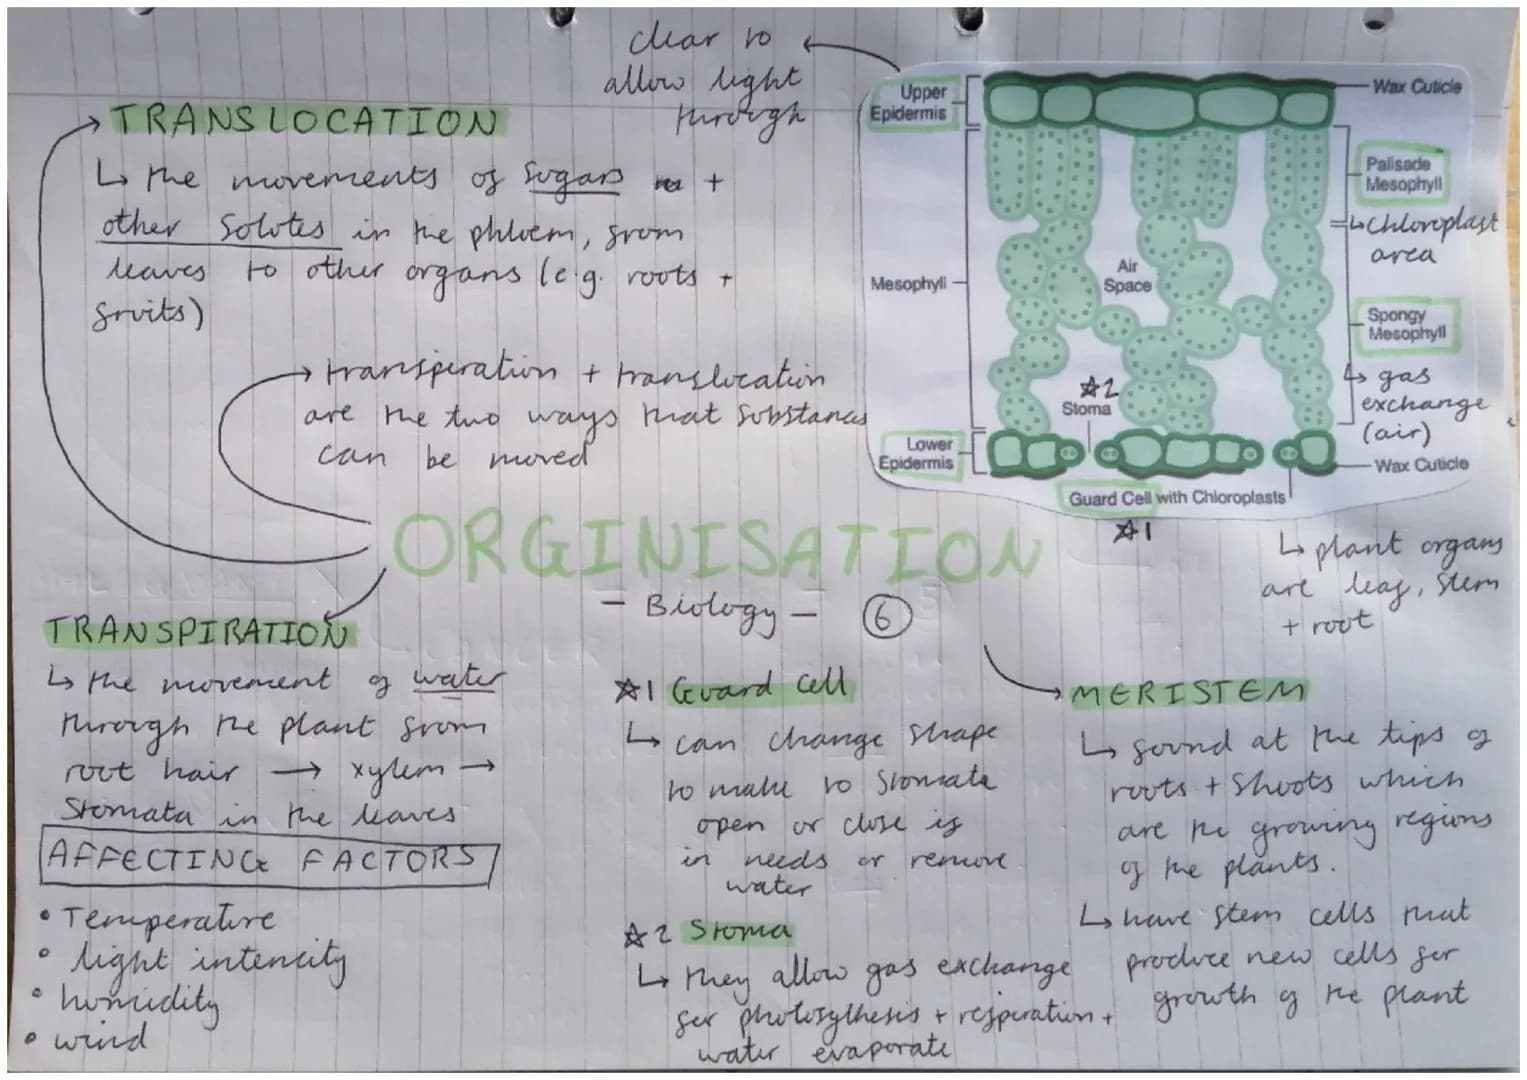 clear to
allow light
through
TRANSLOCATION
↳ the movements of sugars +
other solutes in the phloem, from
leaves to other organs (e.g. roots +
fruits)
→ transpiration + translocation
are the two ways that substances
can be moved
Upper
Epidermis
Wax Cuticle
Palisade
Mesophyll
↳ chloroplast
area
Mesophyll
Air
Space
Spongy
Mesophyll
↳ gas
exchange
(air)
☆2
Stoma
Lower
Epidermis
Wax Cuticle
Guard Cell with Chloroplasts
☆1
↳ plant organs
are leaf, stem
+ root
ORGINISATION
- Biology - 6
TRANSPIRATION
↳ the movement of water
through the plant from
root hair → xylem →
stomata in the leaves
AFFECTING FACTORS
• Temperature
• light intencity
• humidity
• wind
☆1 Guard cell
↳ can change shape
to make to stomata
open or close is
in needs or remove
water
☆2 Stoma
↳ they allow gas exchange
for photosylhesis + respiration +
water evaporate
MERISTEM
↳ found at the tips of
roots + shoots which
are the growing regions
of the plants.
↳ have stem cells that
produce new cells for
growth of the plant